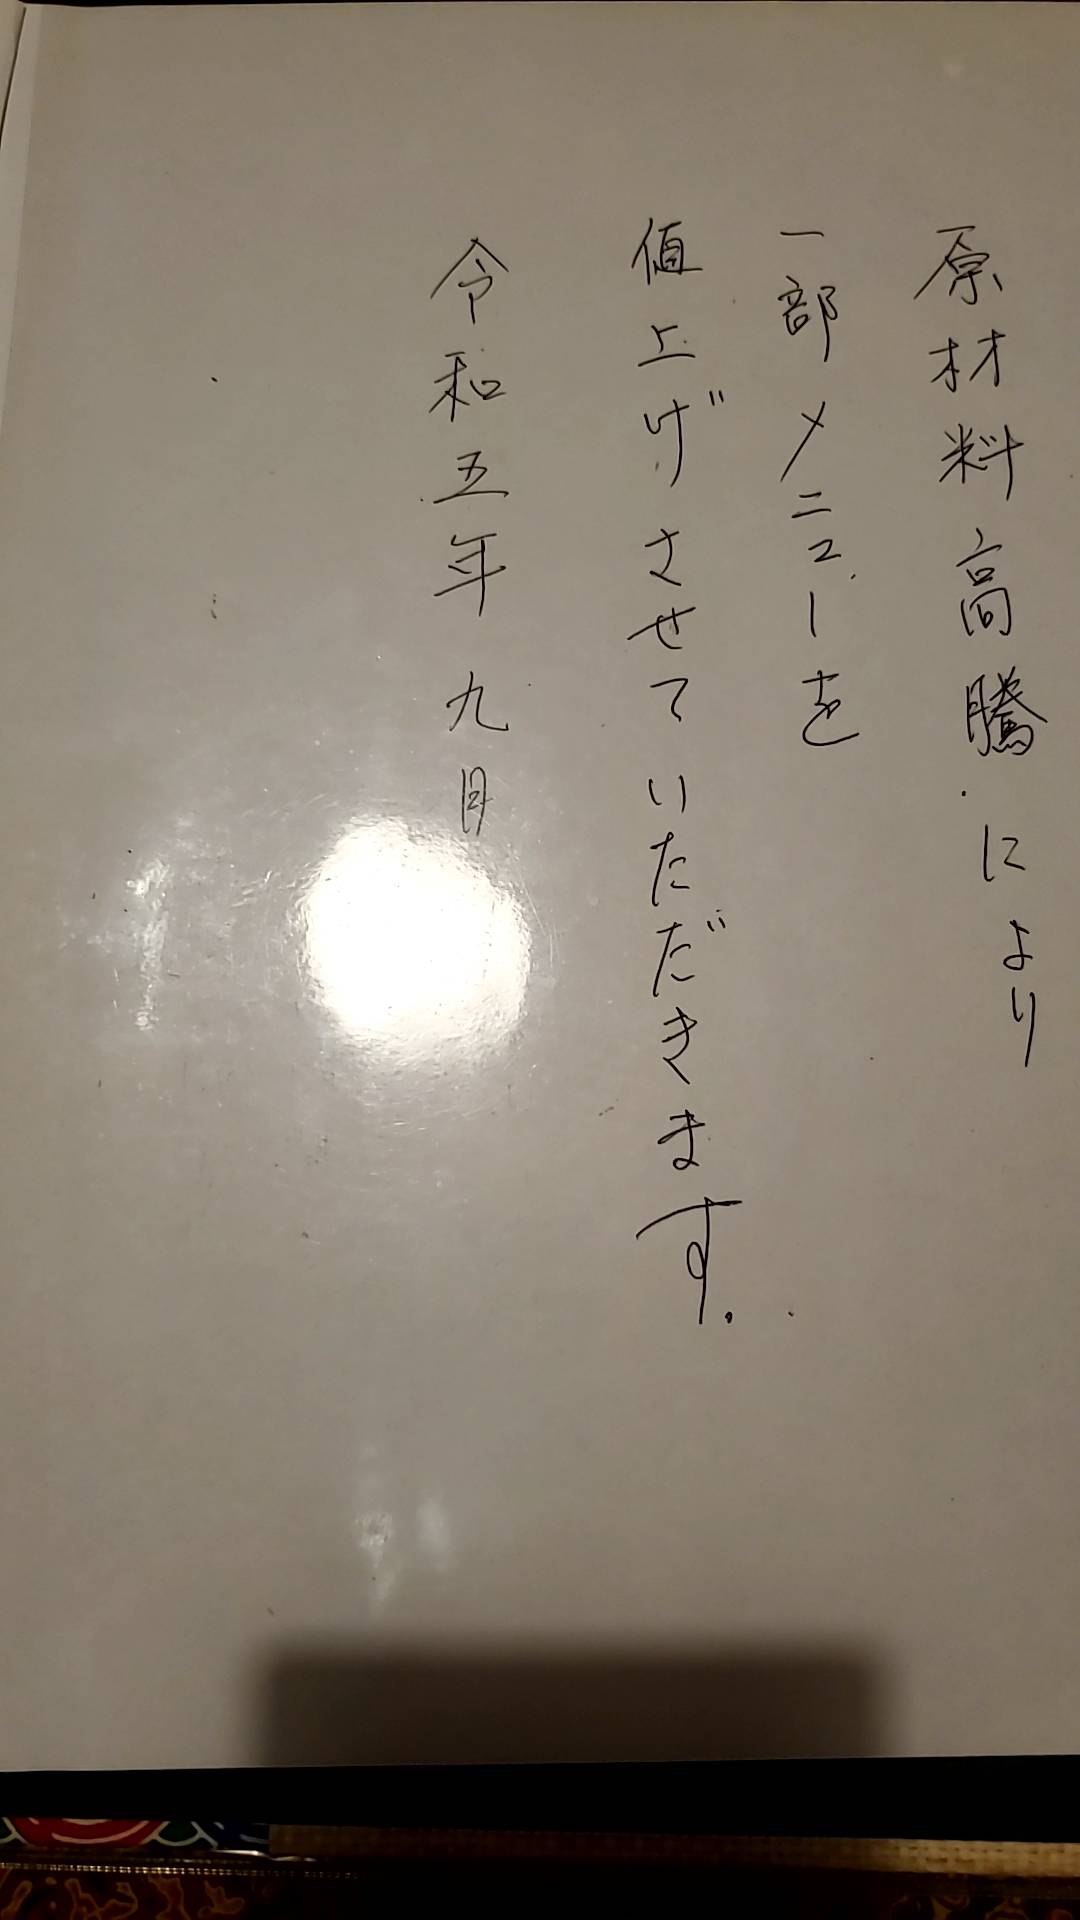 原材料高騰により
一部メニューを
値上げさせていただきます。
令和五年九月